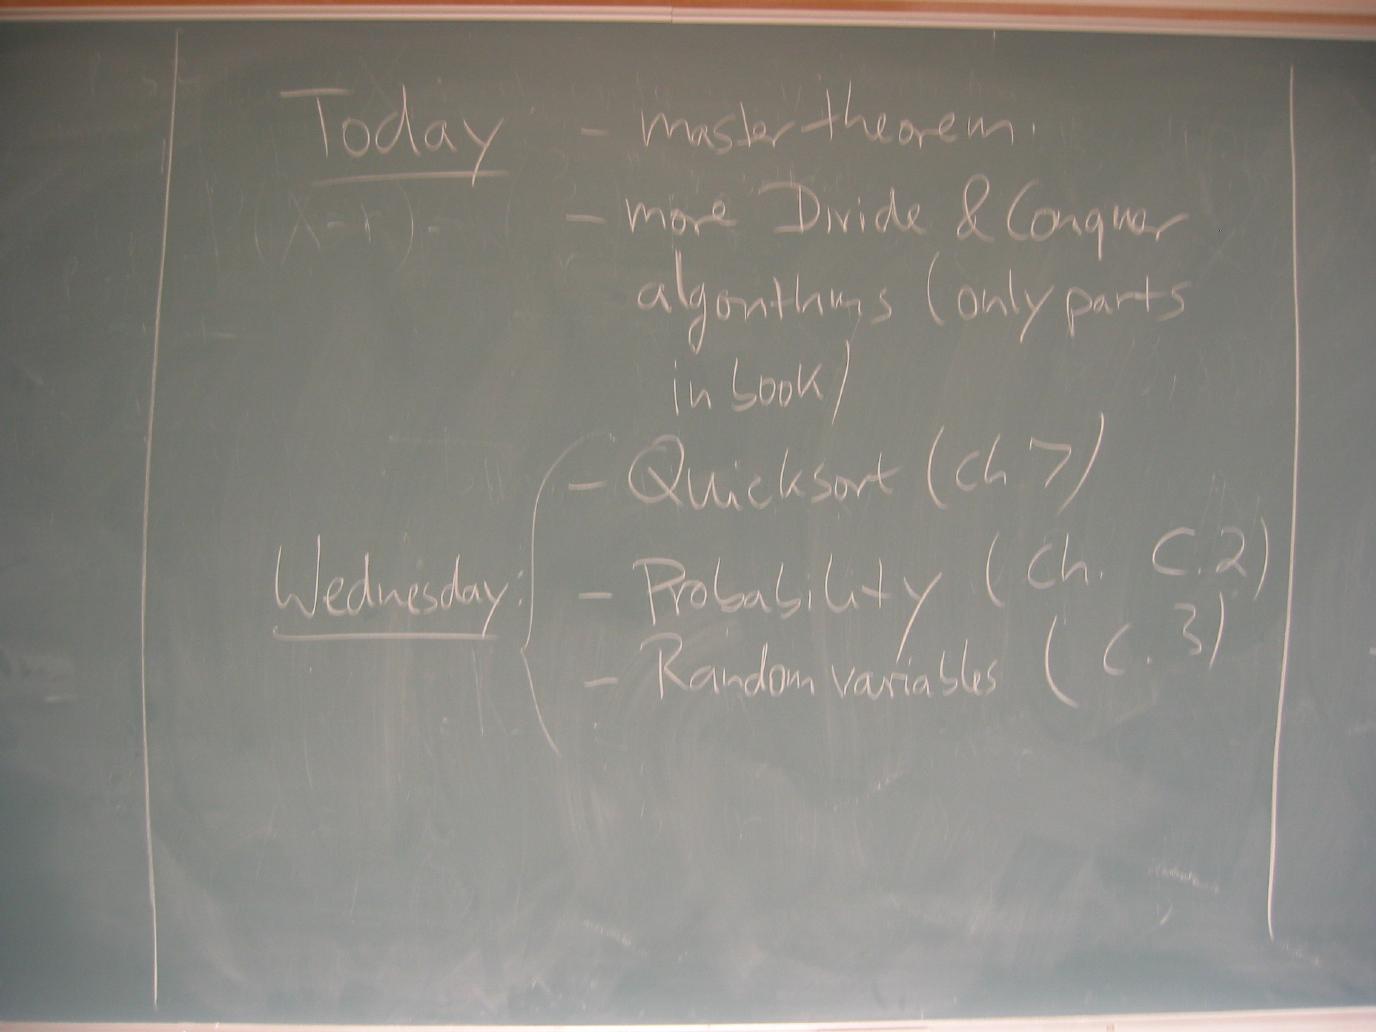 Today - master theorem.
- more Divide & Conquer
algorithms (only parts
in book)
- Quicksort (ch 7)
Wednesday: - Probability (Ch. C.2)
- Random variables (C.3)